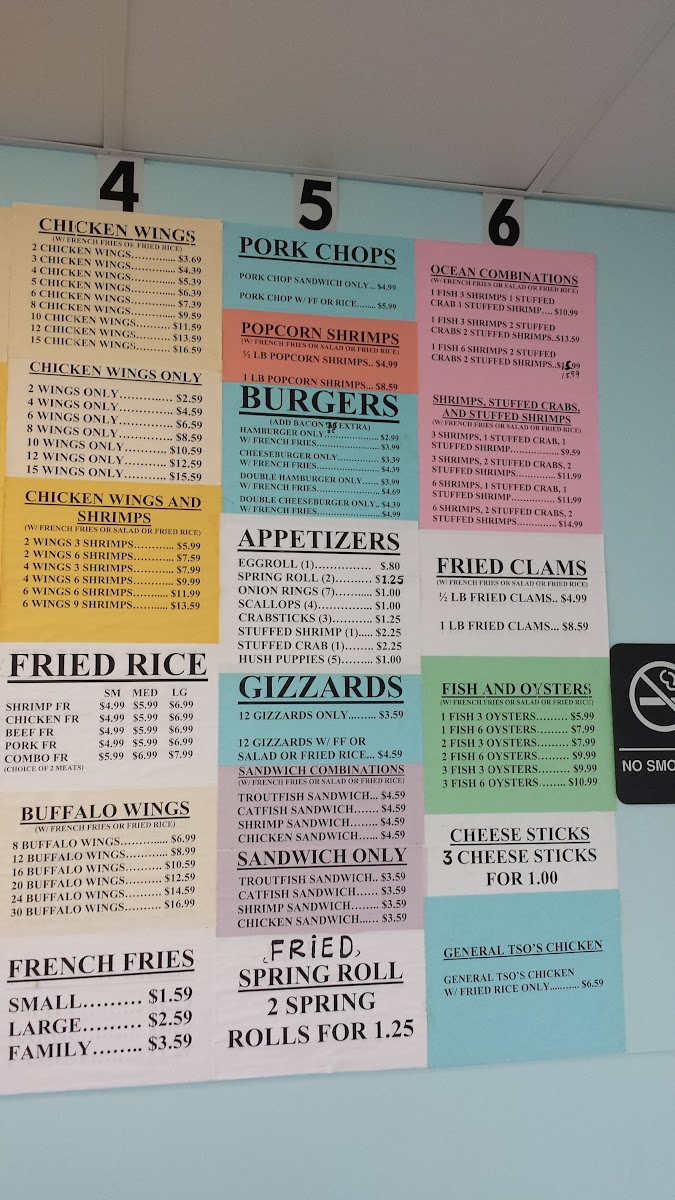 4
CHICKEN WINGS
(W/ FRENCH FRIES OR FRIED RICE)
2 CHICKEN WINGS............ $3.69
3 CHICKEN WINGS............ $4.39
4 CHICKEN WINGS............ $5.39
5 CHICKEN WINGS............ $6.39
6 CHICKEN WINGS............ $7.39
8 CHICKEN WINGS............ $9.59
10 CHICKEN WINGS.......... $11.59
12 CHICKEN WINGS.......... $13.59
15 CHICKEN WINGS.......... $16.59
CHICKEN WINGS ONLY
2 WINGS ONLY............... $2.59
4 WINGS ONLY............... $4.59
6 WINGS ONLY............... $6.59
8 WINGS ONLY............... $8.59
10 WINGS ONLY............. $10.59
12 WINGS ONLY............. $12.59
15 WINGS ONLY............. $15.59
CHICKEN WINGS AND
SHRIMPS
(W/ FRENCH FRIES OR SALAD OR FRIED RICE)
2 WINGS 3 SHRIMPS........... $5.99
2 WINGS 6 SHRIMPS........... $7.59
4 WINGS 3 SHRIMPS........... $7.99
4 WINGS 6 SHRIMPS........... $9.99
6 WINGS 6 SHRIMPS.......... $11.99
6 WINGS 9 SHRIMPS.......... $13.59
FRIED RICE
SM MED LG
SHRIMP FR $4.99 $5.99 $6.99
CHICKEN FR $4.99 $5.99 $6.99
BEEF FR $4.99 $5.99 $6.99
PORK FR $4.99 $5.99 $6.99
COMBO FR $5.99 $6.99 $7.99
(CHOICE OF 2 MEATS)
BUFFALO WINGS
(W/ FRENCH FRIES OR FRIED RICE)
8 BUFFALO WINGS............ $6.99
12 BUFFALO WINGS.......... $8.99
16 BUFFALO WINGS......... $10.59
20 BUFFALO WINGS......... $12.59
24 BUFFALO WINGS......... $14.59
30 BUFFALO WINGS......... $16.99
FRENCH FRIES
SMALL......... $1.59
LARGE......... $2.59
FAMILY........ $3.59
5
PORK CHOPS
PORK CHOP SANDWICH ONLY... $4.99
PORK CHOP W/ FF OR RICE........ $5.99
POPCORN SHRIMPS
(W/ FRENCH FRIES OR SALAD OR FRIED RICE)
½ LB POPCORN SHRIMPS.. $4.99
1 LB POPCORN SHRIMPS... $8.59
BURGERS
(ADD BACON EXTRA)
HAMBURGER ONLY.................... $2.99
W/ FRENCH FRIES...................... $3.99
CHEESEBURGER ONLY.............. $3.39
W/ FRENCH FRIES...................... $4.39
DOUBLE HAMBURGER ONLY...... $3.99
W/ FRENCH FRIES...................... $4.69
DOUBLE CHEESEBURGER ONLY.. $4.39
W/ FRENCH FRIES...................... $4.99
APPETIZERS
EGGROLL (1)............... $.80
SPRING ROLL (2).......... $1.25
ONION RINGS (7).......... $1.00
SCALLOPS (4).............. $1.00
CRABSTICKS (3)........... $1.25
STUFFED SHRIMP (1)..... $2.25
STUFFED CRAB (1)........ $2.25
HUSH PUPPIES (5)......... $1.00
GIZZARDS
12 GIZZARDS ONLY......... $3.59
12 GIZZARDS W/ FF OR
SALAD OR FRIED RICE... $4.59
SANDWICH COMBINATIONS
(W/ FRENCH FRIES OR SALAD OR FRIED RICE)
TROUTFISH SANDWICH... $4.59
CATFISH SANDWICH....... $4.59
SHRIMP SANDWICH........ $4.59
CHICKEN SANDWICH...... $4.59
SANDWICH ONLY
TROUTFISH SANDWICH.. $3.59
CATFISH SANDWICH...... $3.59
SHRIMP SANDWICH........ $3.59
CHICKEN SANDWICH...... $3.59
FRIED
SPRING ROLL
2 SPRING
ROLLS FOR 1.25
6
OCEAN COMBINATIONS
(W/ FRENCH FRIES OR SALAD OR FRIED RICE)
1 FISH 3 SHRIMPS 1 STUFFED
CRAB 1 STUFFED SHRIMP.... $10.99
1 FISH 3 SHRIMPS 2 STUFFED
CRABS 2 STUFFED SHRIMPS..$13.59
1 FISH 6 SHRIMPS 2 STUFFED
CRABS 2 STUFFED SHRIMPS..
15.99
SHRIMPS, STUFFED CRABS,
AND STUFFED SHRIMPS
(W/ FRENCH FRIES OR SALAD OR FRIED RICE)
3 SHRIMPS, 1 STUFFED CRAB, 1
STUFFED SHRIMP.................. $9.59
3 SHRIMPS, 2 STUFFED CRABS, 2
STUFFED SHRIMPS................ $11.99
6 SHRIMPS, 1 STUFFED CRAB, 1
STUFFED SHRIMP................. $11.99
6 SHRIMPS, 2 STUFFED CRABS, 2
STUFFED SHRIMPS................ $14.99
FRIED CLAMS
(W/ FRENCH FRIES OR SALAD OR FRIED RICE)
½ LB FRIED CLAMS.. $4.99
1 LB FRIED CLAMS... $8.59
FISH AND OYSTERS
(W/ FRENCH FRIES OR SALAD OR FRIED RICE)
1 FISH 3 OYSTERS......... $5.99
1 FISH 6 OYSTERS......... $7.99
2 FISH 3 OYSTERS......... $7.99
2 FISH 6 OYSTERS......... $9.99
3 FISH 3 OYSTERS......... $9.99
3 FISH 6 OYSTERS........ $10.99
CHEESE STICKS
3 CHEESE STICKS
FOR 1.00
GENERAL TSO'S CHICKEN
GENERAL TSO'S CHICKEN
W/ FRIED RICE ONLY.......... $6.59
NO SMO